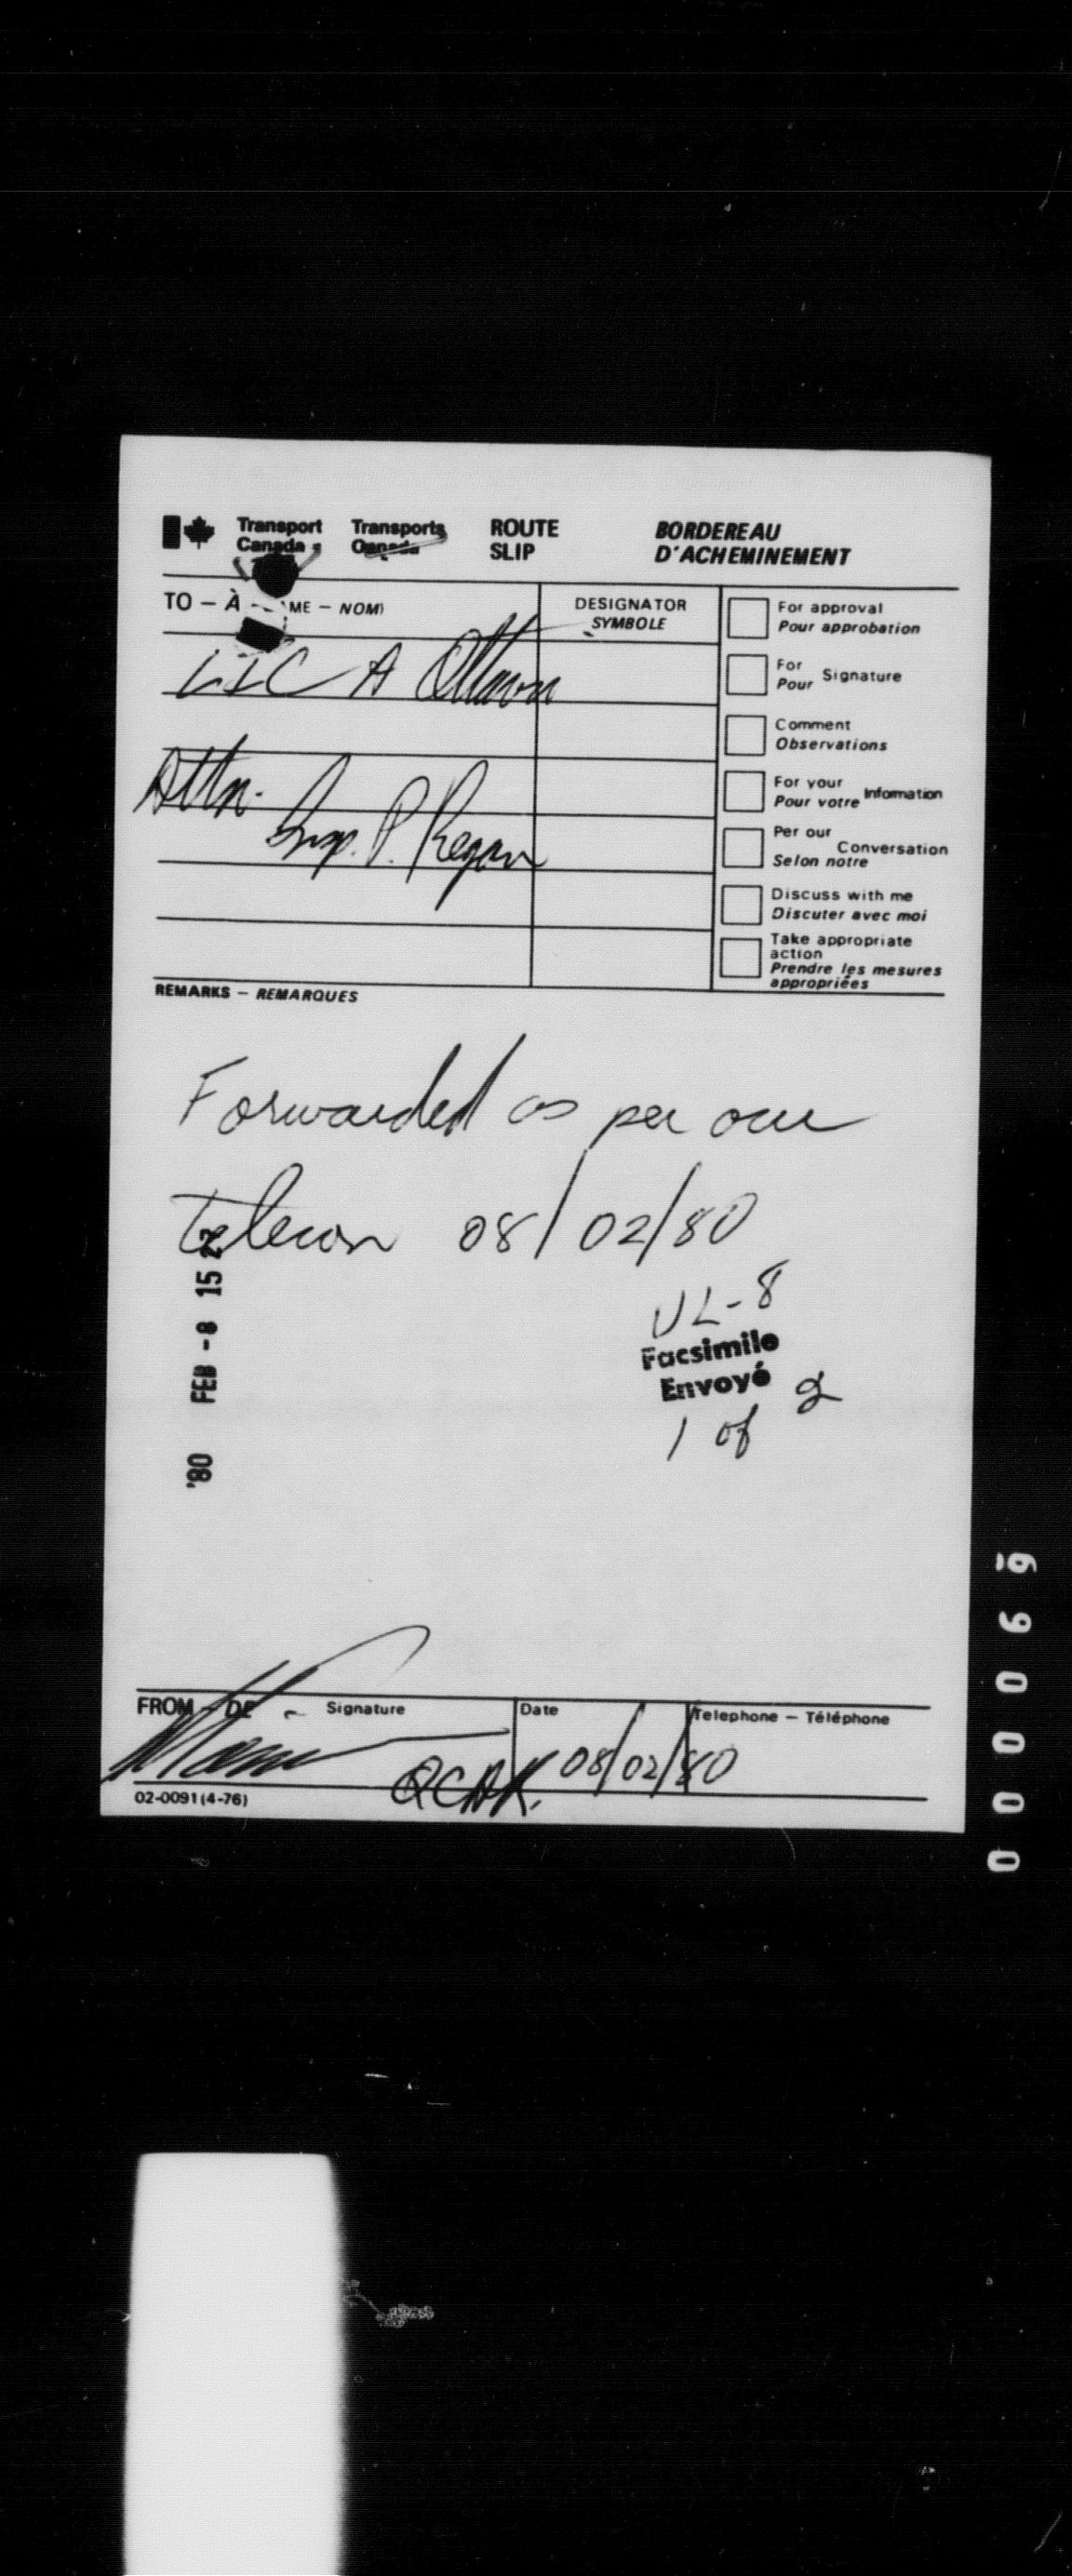 Transport Canada Transports Canada ROUTE SLIP BORDEREAU D'ACHEMINEMENT
TO – À ME – NOM) DESIGNATOR SYMBOLE
For approval
Pour approbation
For Pour Signature
Comment
Observations
For your Pour votre Information
Per our Selon notre Conversation
Discuss with me
Discuter avec moi
Take appropriate
action
Prendre les mesures
appropriées
A Ottawa
Attn.
Insp. P. Regan
REMARKS – REMARQUES
Forwarded as per our
telecon 08/02/80
'80 FEB -8 15
UL-8
Facsimile
Envoyé
1 of 2
FROM – DE – Signature Date Telephone – Téléphone
08/02/80
02-0091 (4-76)
000069